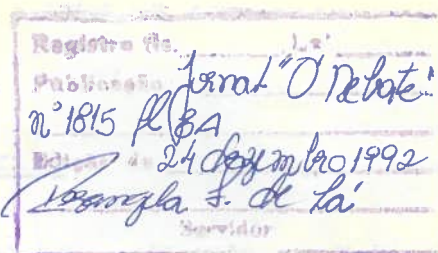 Registro fls.
Publicação Jornal "O Debate"
nº 1815 fl 8A
Edição de 24 dezembro 1992
Rosangela F. de Sá
Servidor